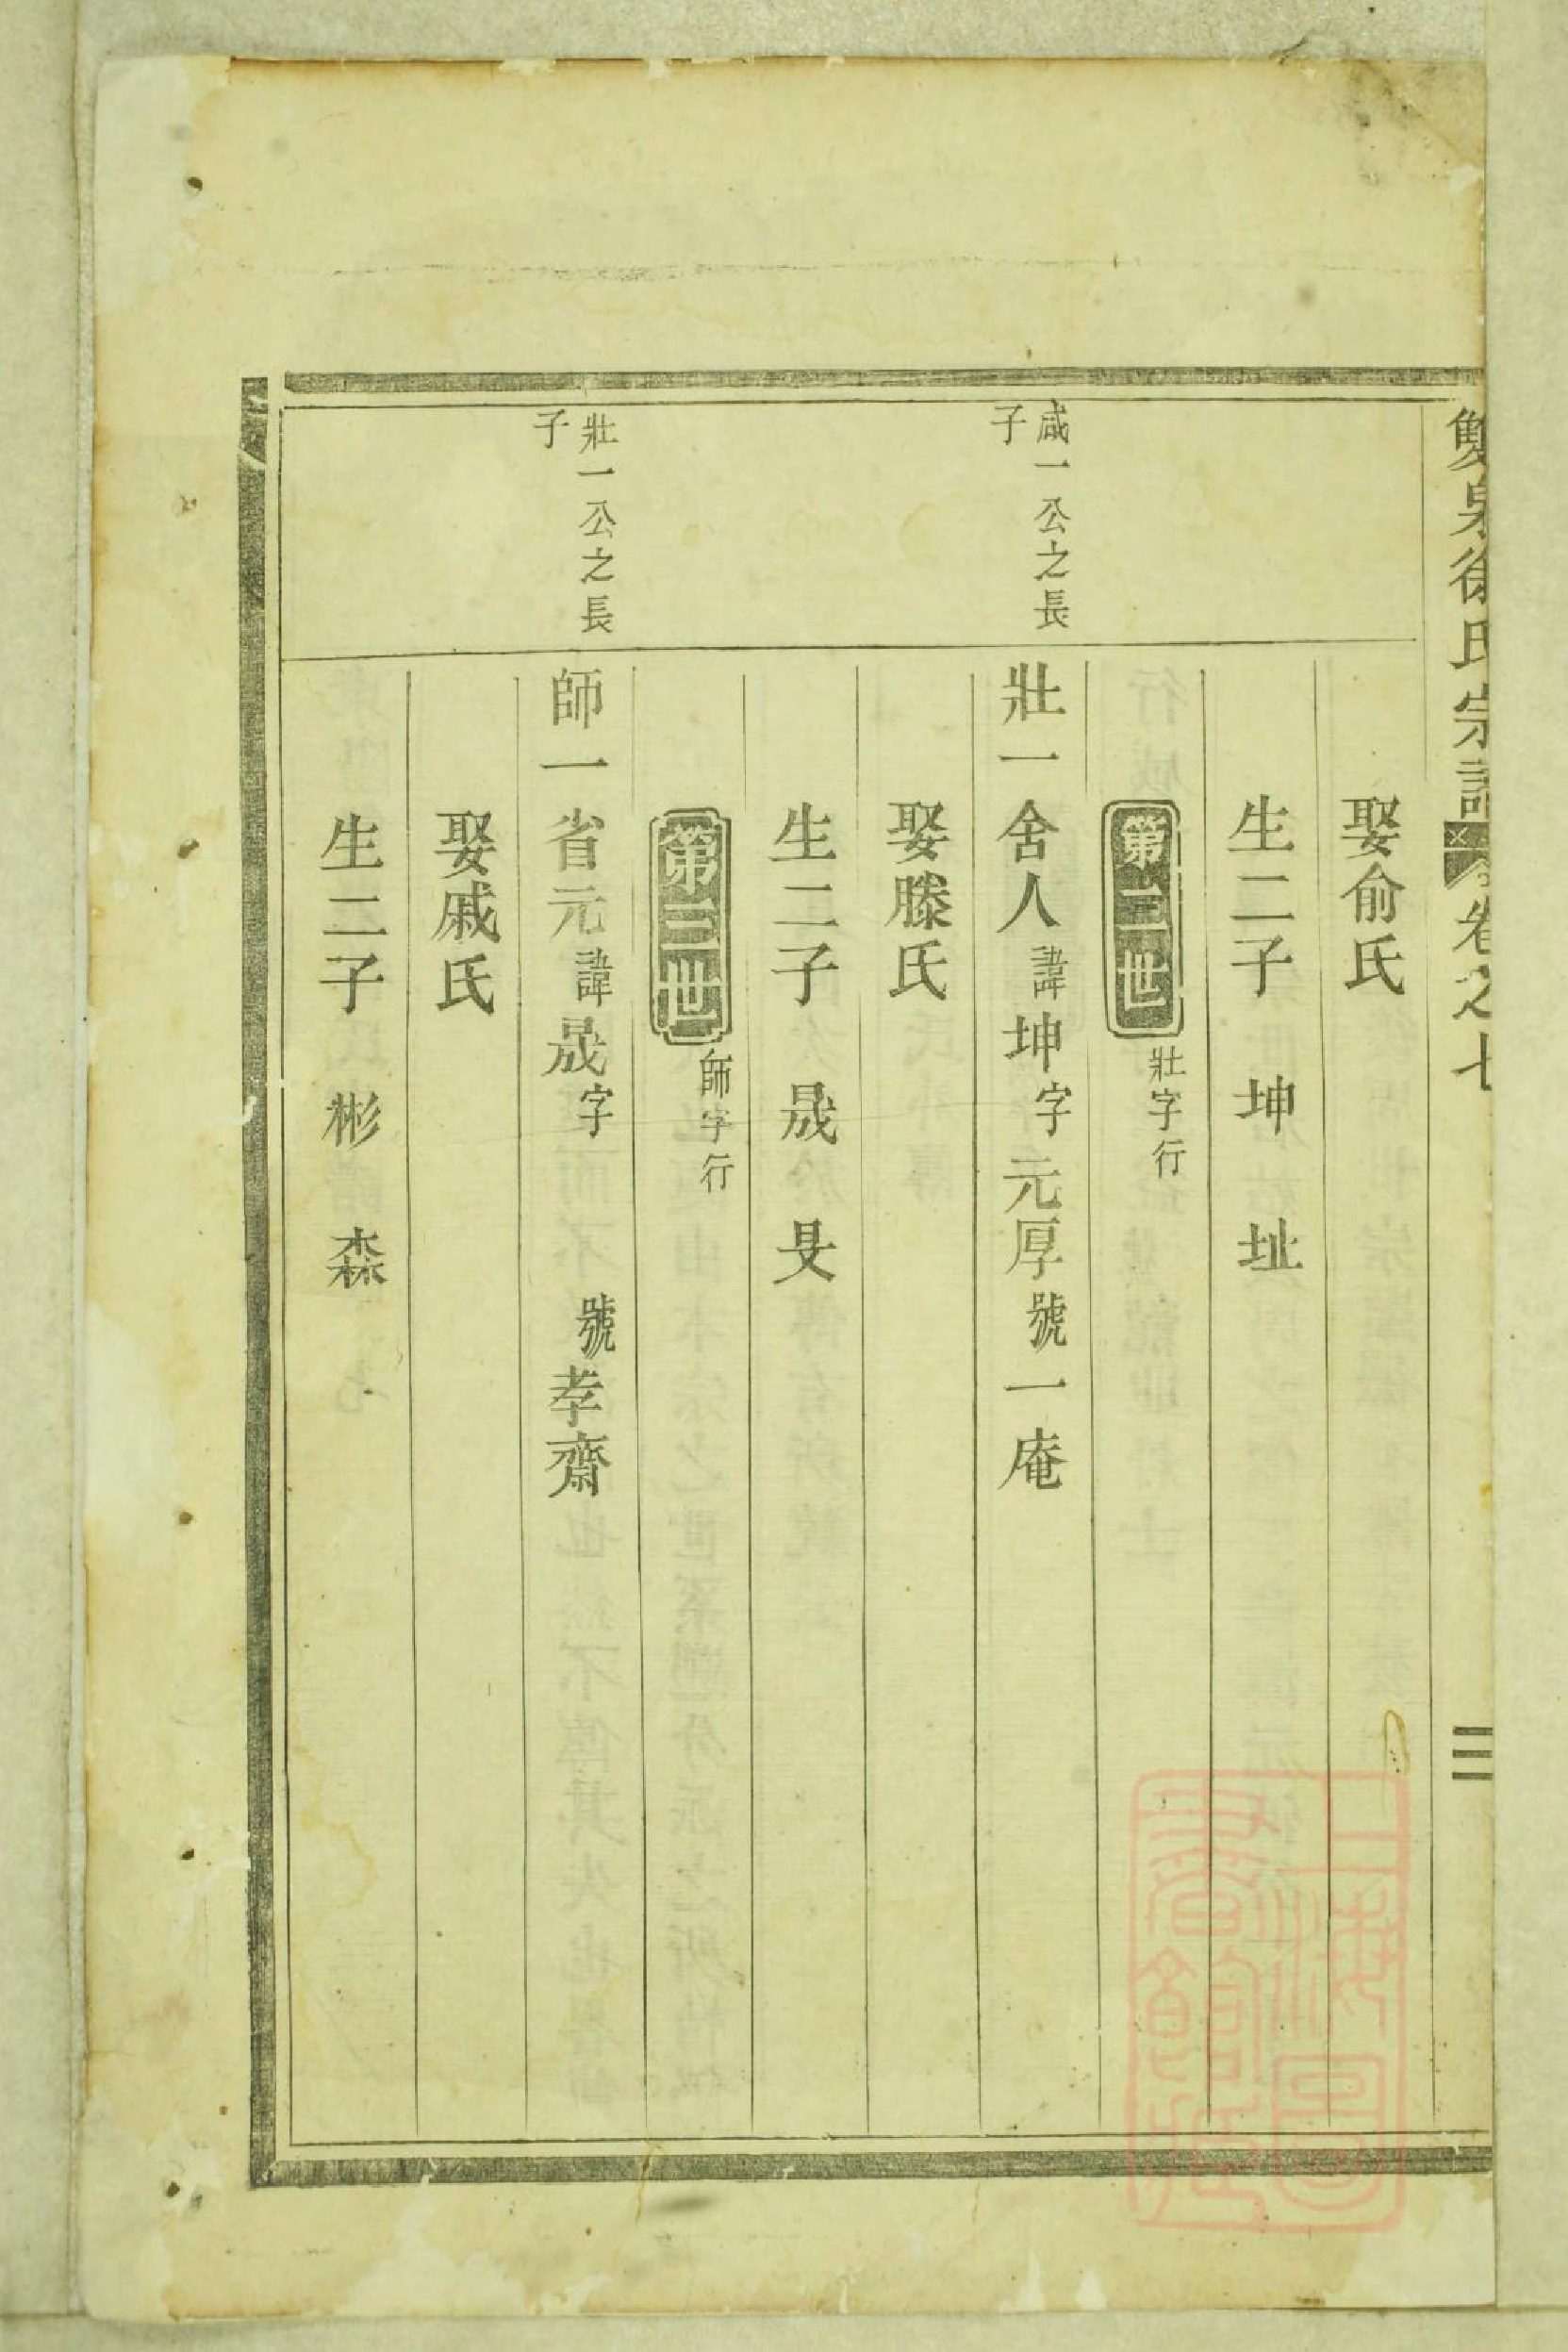 雙泉徐氏宗譜 卷之七 三
娶俞氏
生二子 坤 址
第二世 壯字行
咸一公之長子
壯一舍人諱坤字元厚號一庵
娶滕氏
生二子 晟 旻
第三世 師字行
壯一公之長子
師一省元諱晟字 號孝齋
娶戚氏
生二子 彬 森
上海圖書館藏